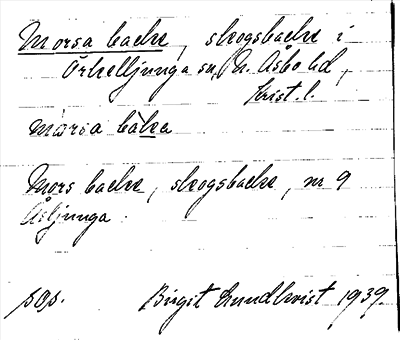 Morsa backe, skogsbacke i
Örkelljunga sn, N. Åsbo hd,
Krist. l.
marsa baka
Mors backe, skogsbacke, nr 9
Åsljunga
sgs. Birgit Lundkvist 1939.